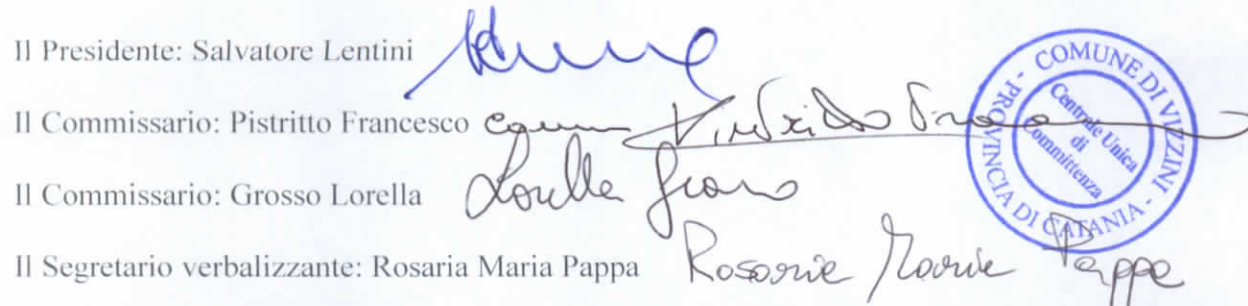 Il Presidente: Salvatore Lentini
Il Commissario: Pistritto Francesco
Il Commissario: Grosso Lorella Lorella Grosso
Il Segretario verbalizzante: Rosaria Maria Pappa Rosaria Maria Pappa
COMUNE DI VIZZINI - PROVINCIA DI CATANIA -
Centrale Unica
di
Committenza